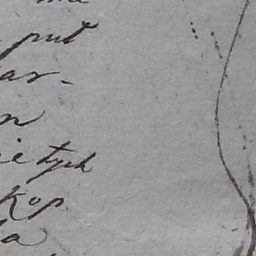 put
ar-
n
ie tych
Kop
a